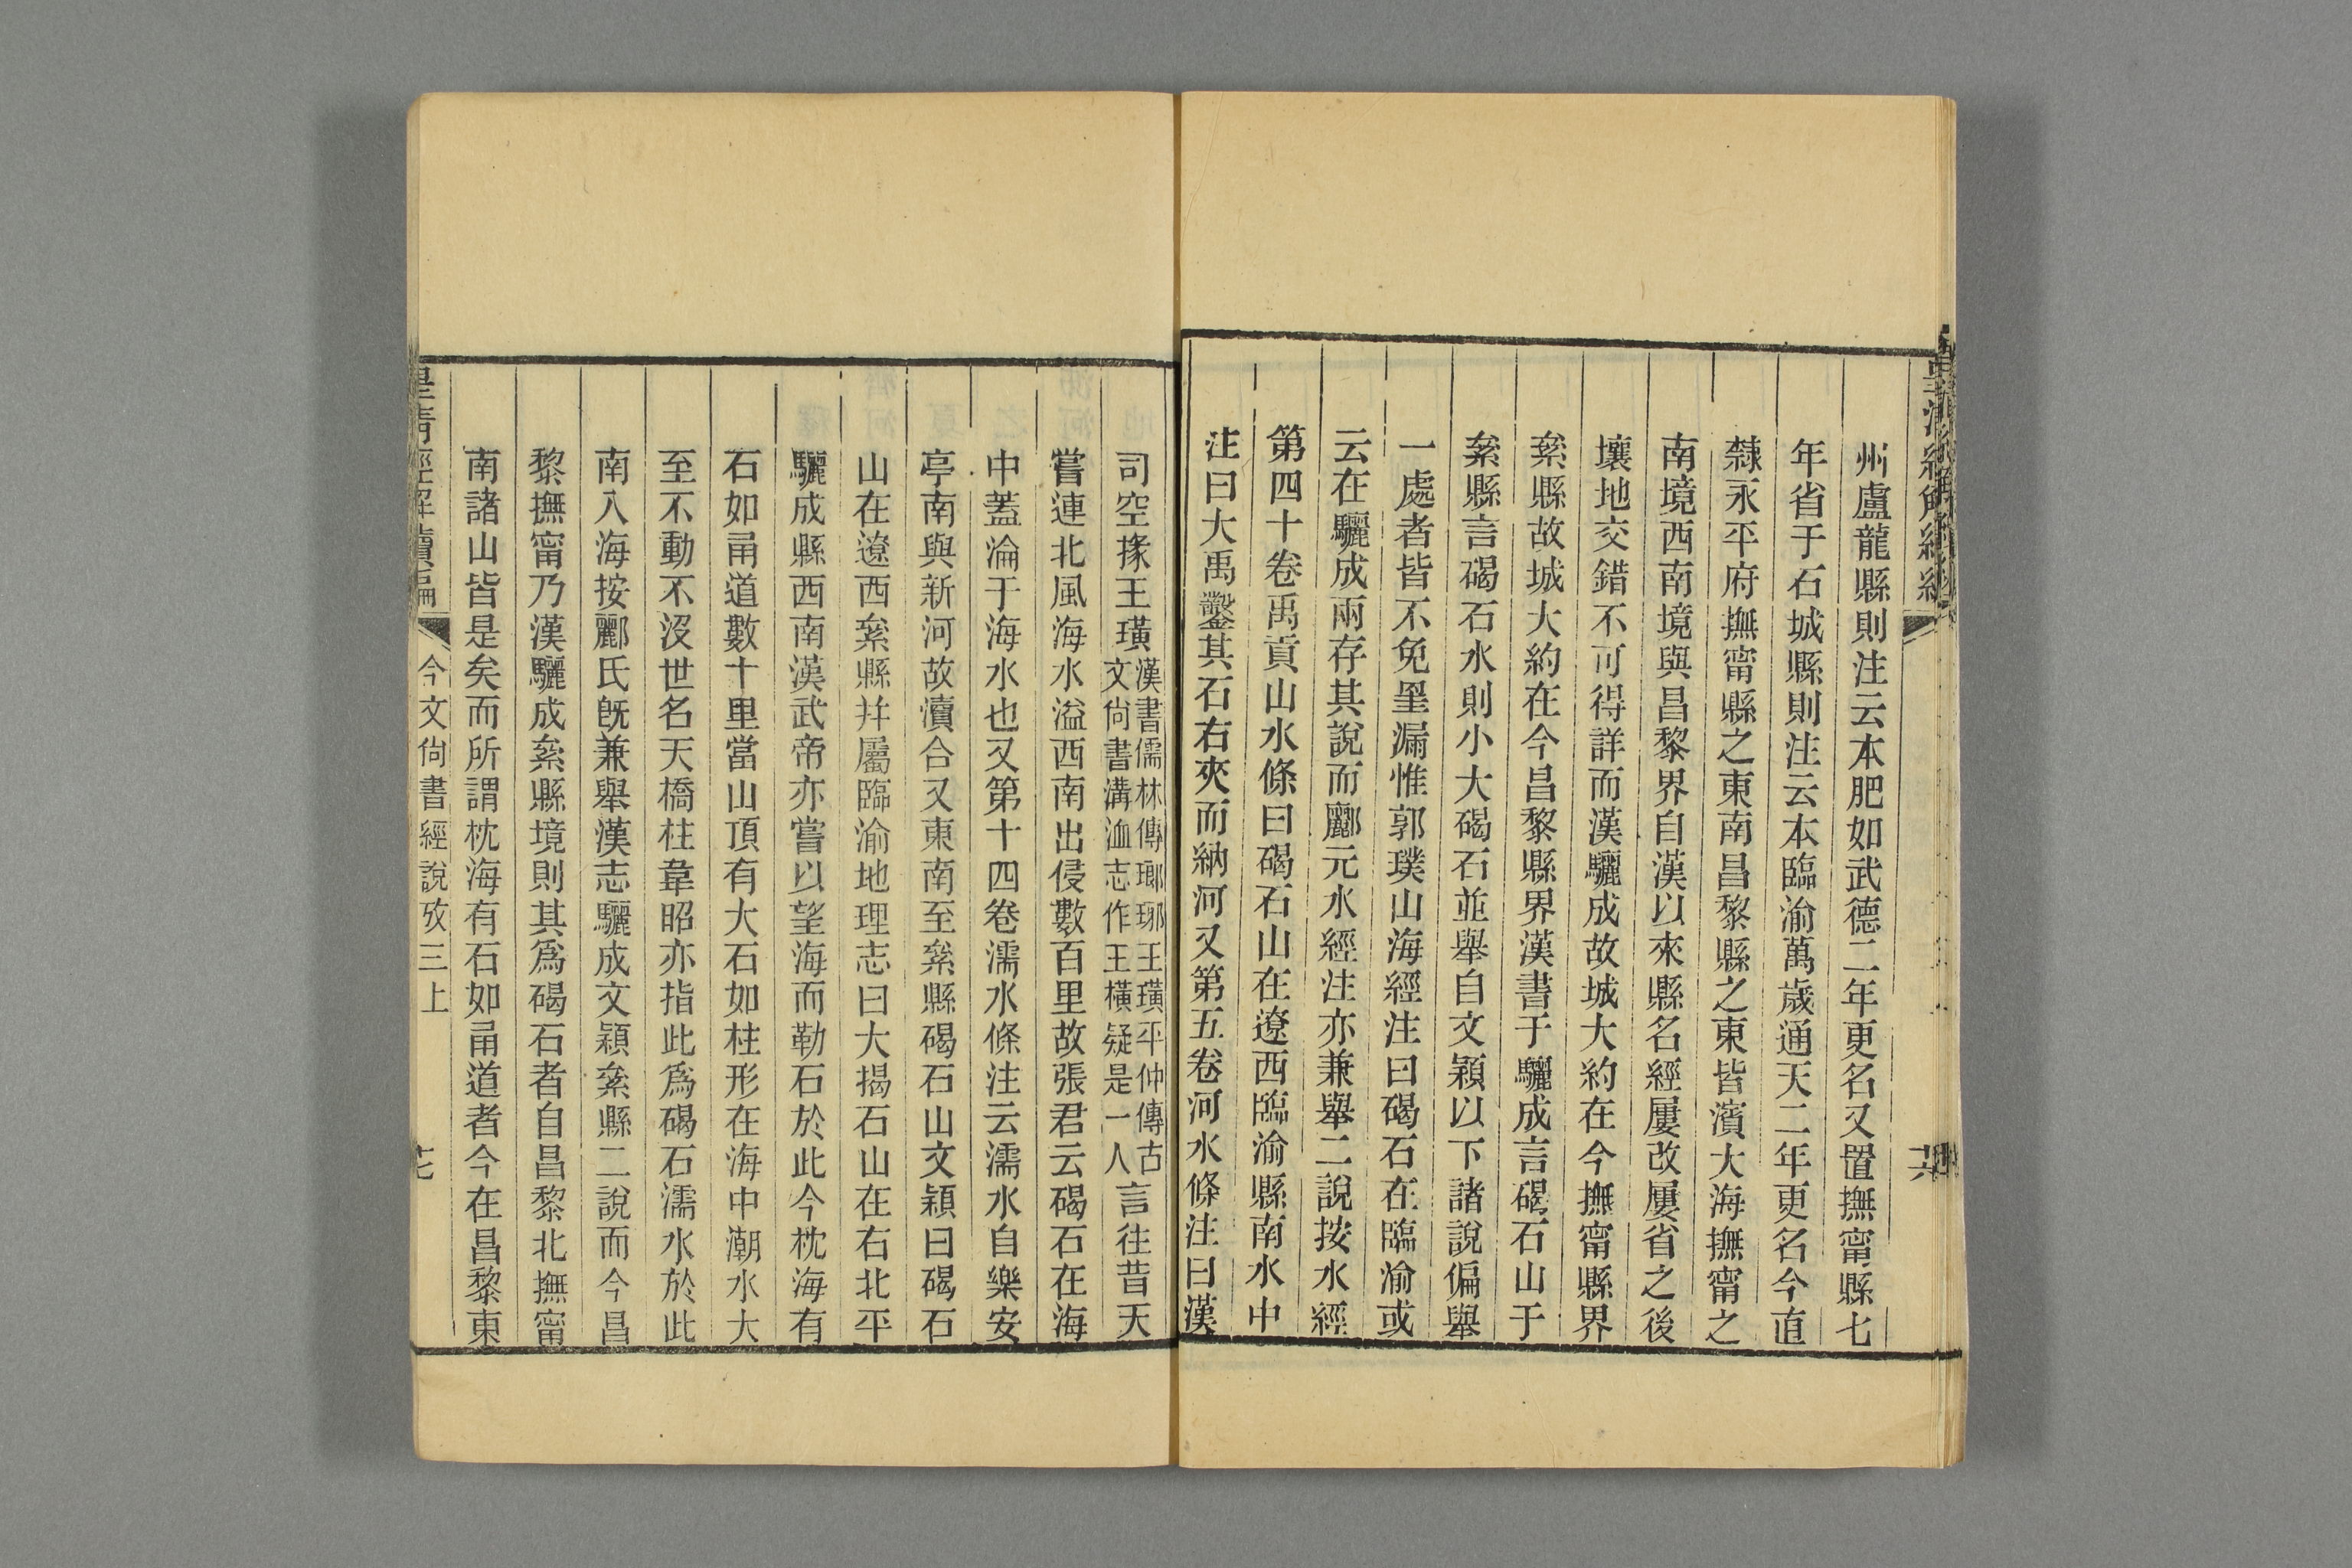 州盧龍縣則注云本肥如武德二年更名又置撫甯縣七
年省于石城縣則注云本臨渝萬歲通天二年更名今直
隸永平府撫甯縣之東南昌黎縣之東皆濱大海撫甯之
南境西南境與昌黎界自漢以來縣名經屢改屢省之後
壤地交錯不可得詳而漢驪成故城大約在今撫甯縣界
絫縣故城大約在今昌黎縣界漢書于驪成言碣石山于
絫縣言碣石水則小大碣石並舉自文穎以下諸說偏舉
一處者皆不免罣漏惟郭璞山海經注曰碣石在臨渝或
云在驪成兩存其說而酈元水經注亦兼舉二說按水經
第四十卷禹貢山水條曰碣石山在遼西臨渝縣南水中
注曰大禹鑿其石右夾而納河又第五卷河水條注曰漢
司空掾王璜漢書儒林傳瑯琊王璜平仲傳古文尙書溝洫志作王橫疑是一人言往昔天
嘗連北風海水溢西南出侵數百里故張君云碣石在海
中蓋淪于海水也又第十四卷濡水條注云濡水自樂安
亭南與新河故瀆合又東南至絫縣碣石山文穎曰碣石
山在遼西絫縣幷屬臨渝地理志曰大揭石山在右北平
驪成縣西南漢武帝亦嘗以望海而勒石於此今枕海有
石如甬道數十里當山頂有大石如柱形在海中潮水大
至不動不沒世名天橋柱韋昭亦指此爲碣石濡水於此
南入海按酈氏旣兼舉漢志驪成文穎絫縣二說而今昌
黎撫甯乃漢驪成絫縣境則其爲碣石者自昌黎北撫甯
南諸山皆是矣而所謂枕海有石如甬道者今在昌黎東
皇淸經解續編
今文尙書經說攷三上